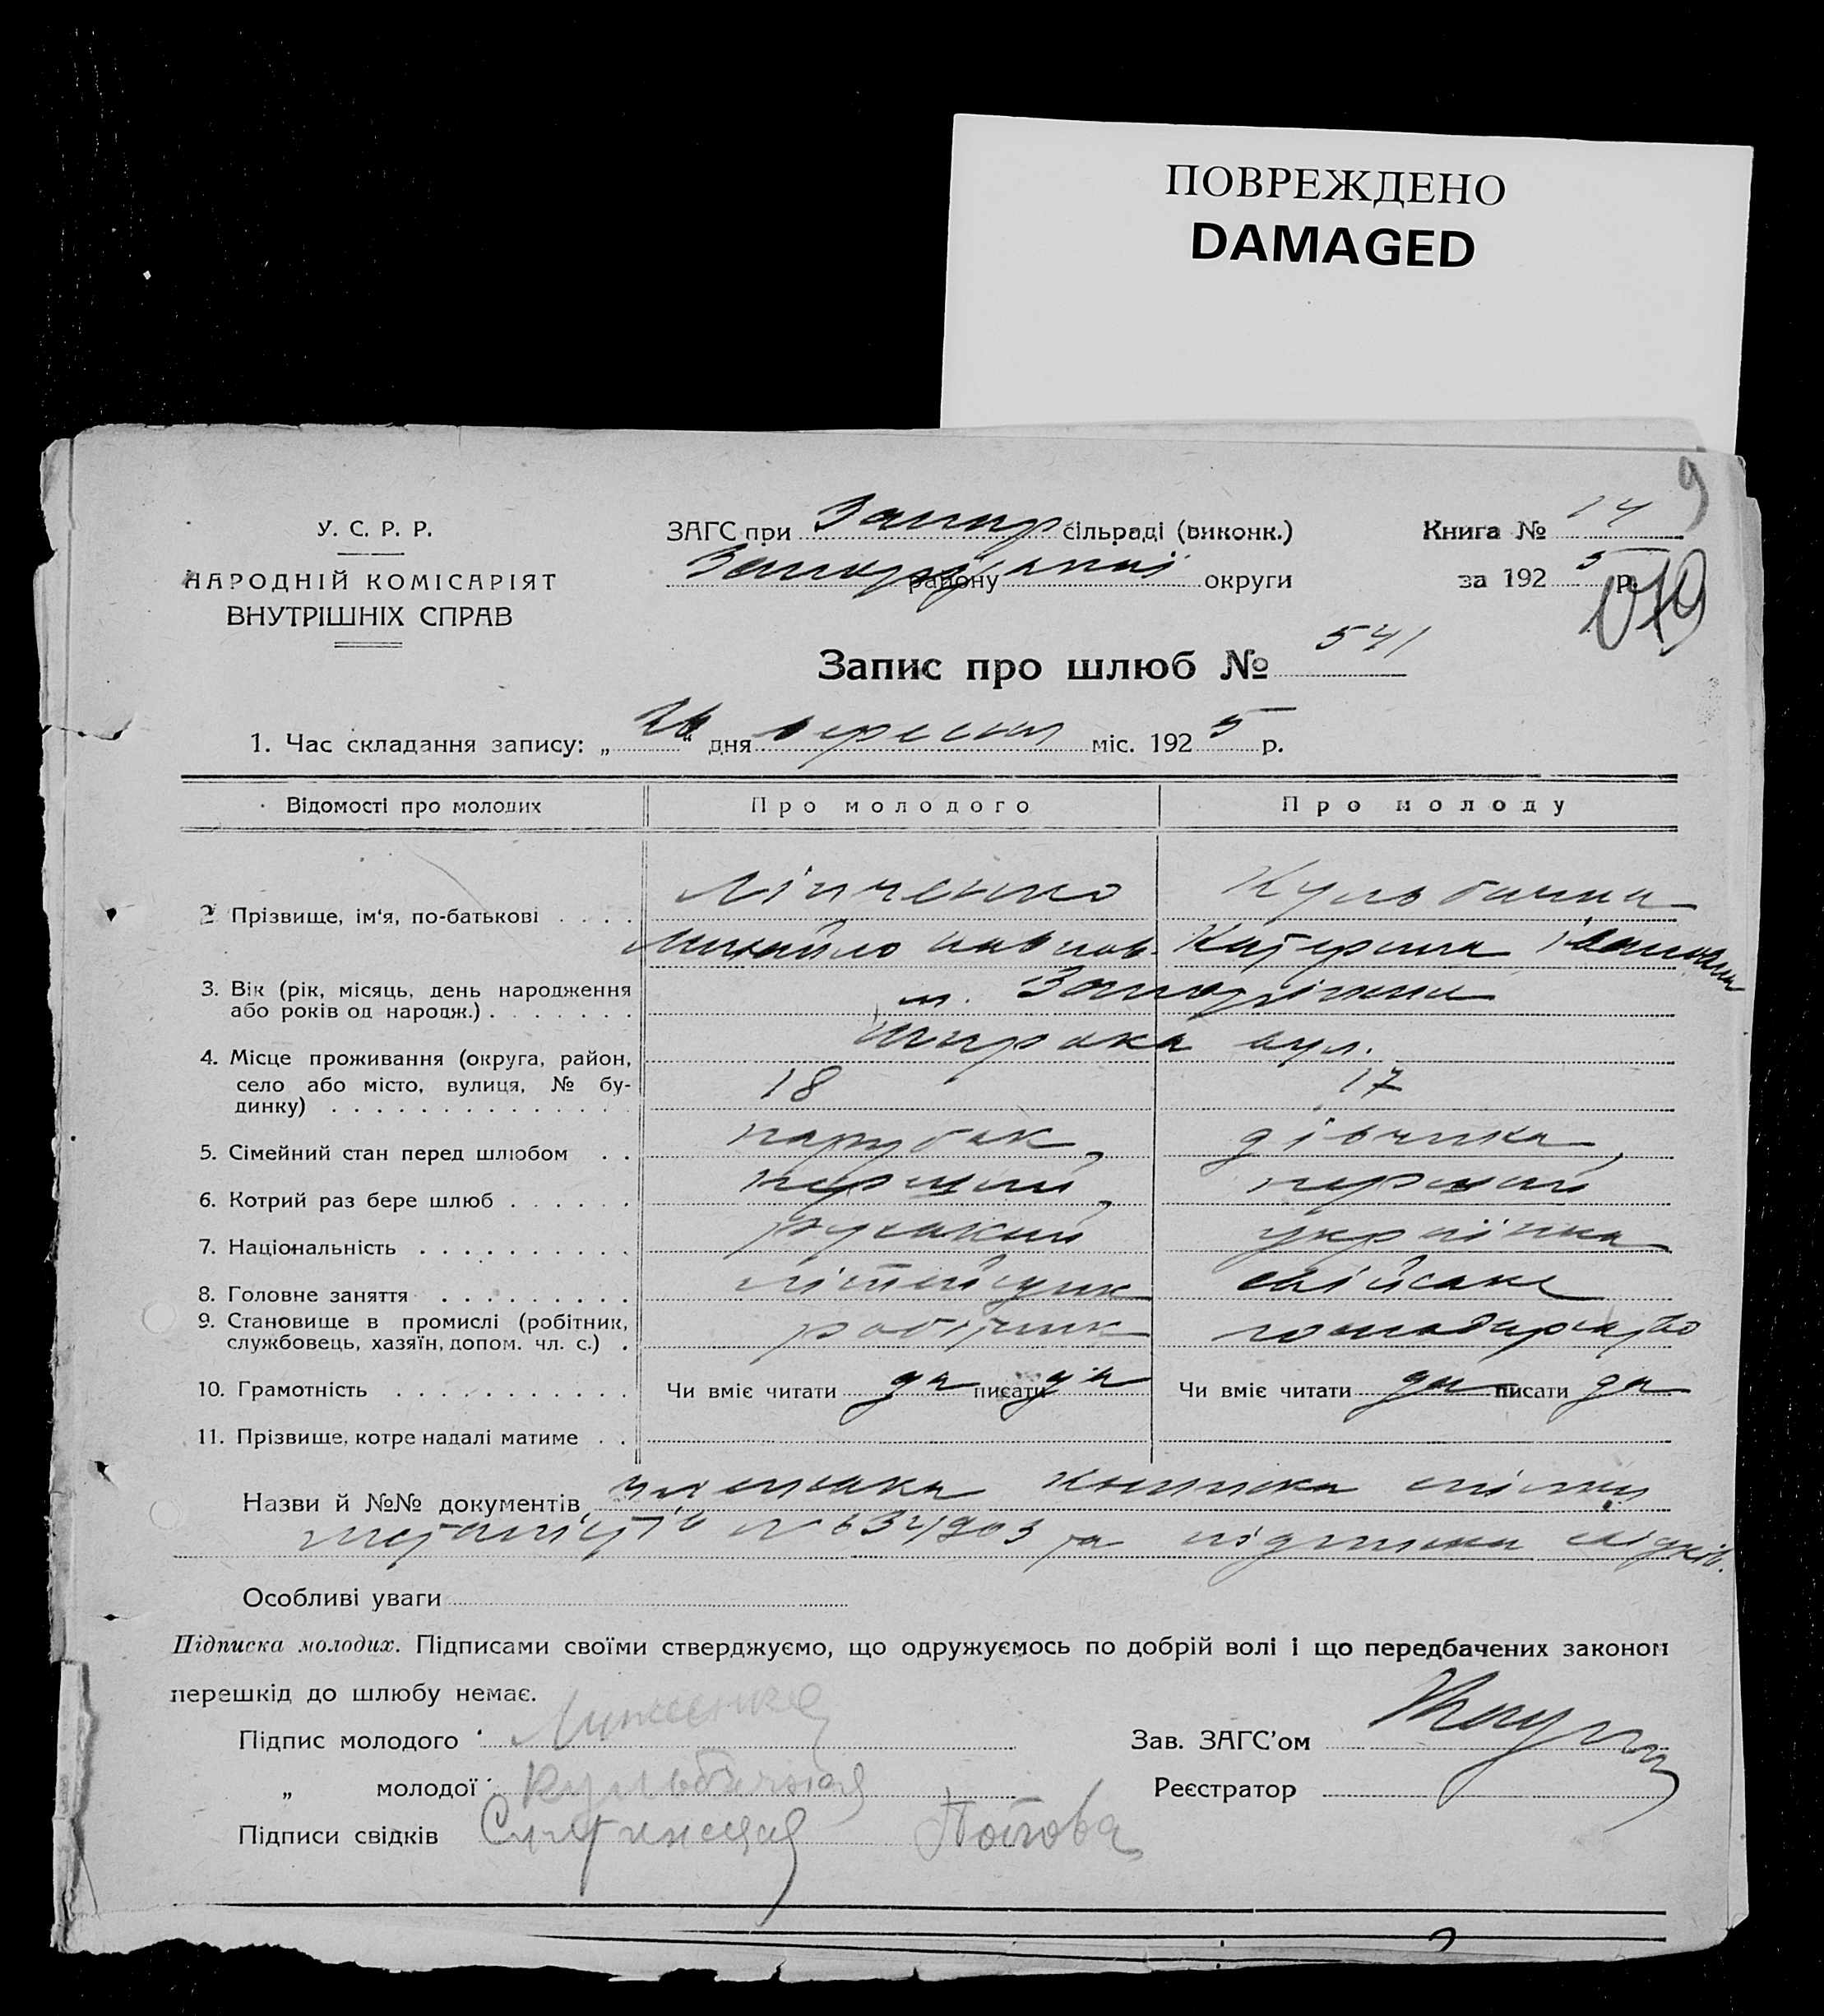 ПОВРЕЖДЕНО
DAMAGED
9
У. С. Р. Р.
НАРОДНІЙ КОМІСАРІЯТ
ВНУТРІШНІХ СПРАВ
ЗАГС при Запор сільраді (виконк.)
району округи
Книга № 14
за 1925 р.
Запис про шлюб № 541
1. Час складання запису: „26“ дня вересня міс. 1925 р.
Відомості про молодих Про молодого Про молоду
2 Прізвище, ім‘я, по-батькові . . . .
Михайло Катерина
3. Вік (рік, місяць, день народження
або років од народж.) . . . . . . .
м. Запоріжжя
4. Місце проживання (округа, район,
село або місто, вулиця, № бу-
динку) . . . . . . . . . . . . . .
вул.
18 17
5. Сімейний стан перед шлюбом . . парубак, дівчина,
6. Котрий раз бере шлюб . . . . . . перший, перший
7. Національність . . . . . . . . . . руський українка
8. Головне заняття . . . . . . . . . сільське
9. Становище в промислі (робітник,
службовець, хазяїн, допом. чл. с.) . робітник господарство
10. Грамотність . . . . . . . . . . . Чи вміє читати да писати да Чи вміє читати да писати да
11. Прізвище, котре надалі матиме . .
Назви й №№ документів членська книжка спілки
металістів № 634903 та підписка свідків.
Особливі уваги
Підписка молодих. Підписами своїми стверджуємо, що одружуємось по добрій волі і що передбачених законом
перешкід до шлюбу немає.
Підпис молодого
„ молодої
Підписи свідків Попова
Зав. ЗАГС’ом
Реєстратор